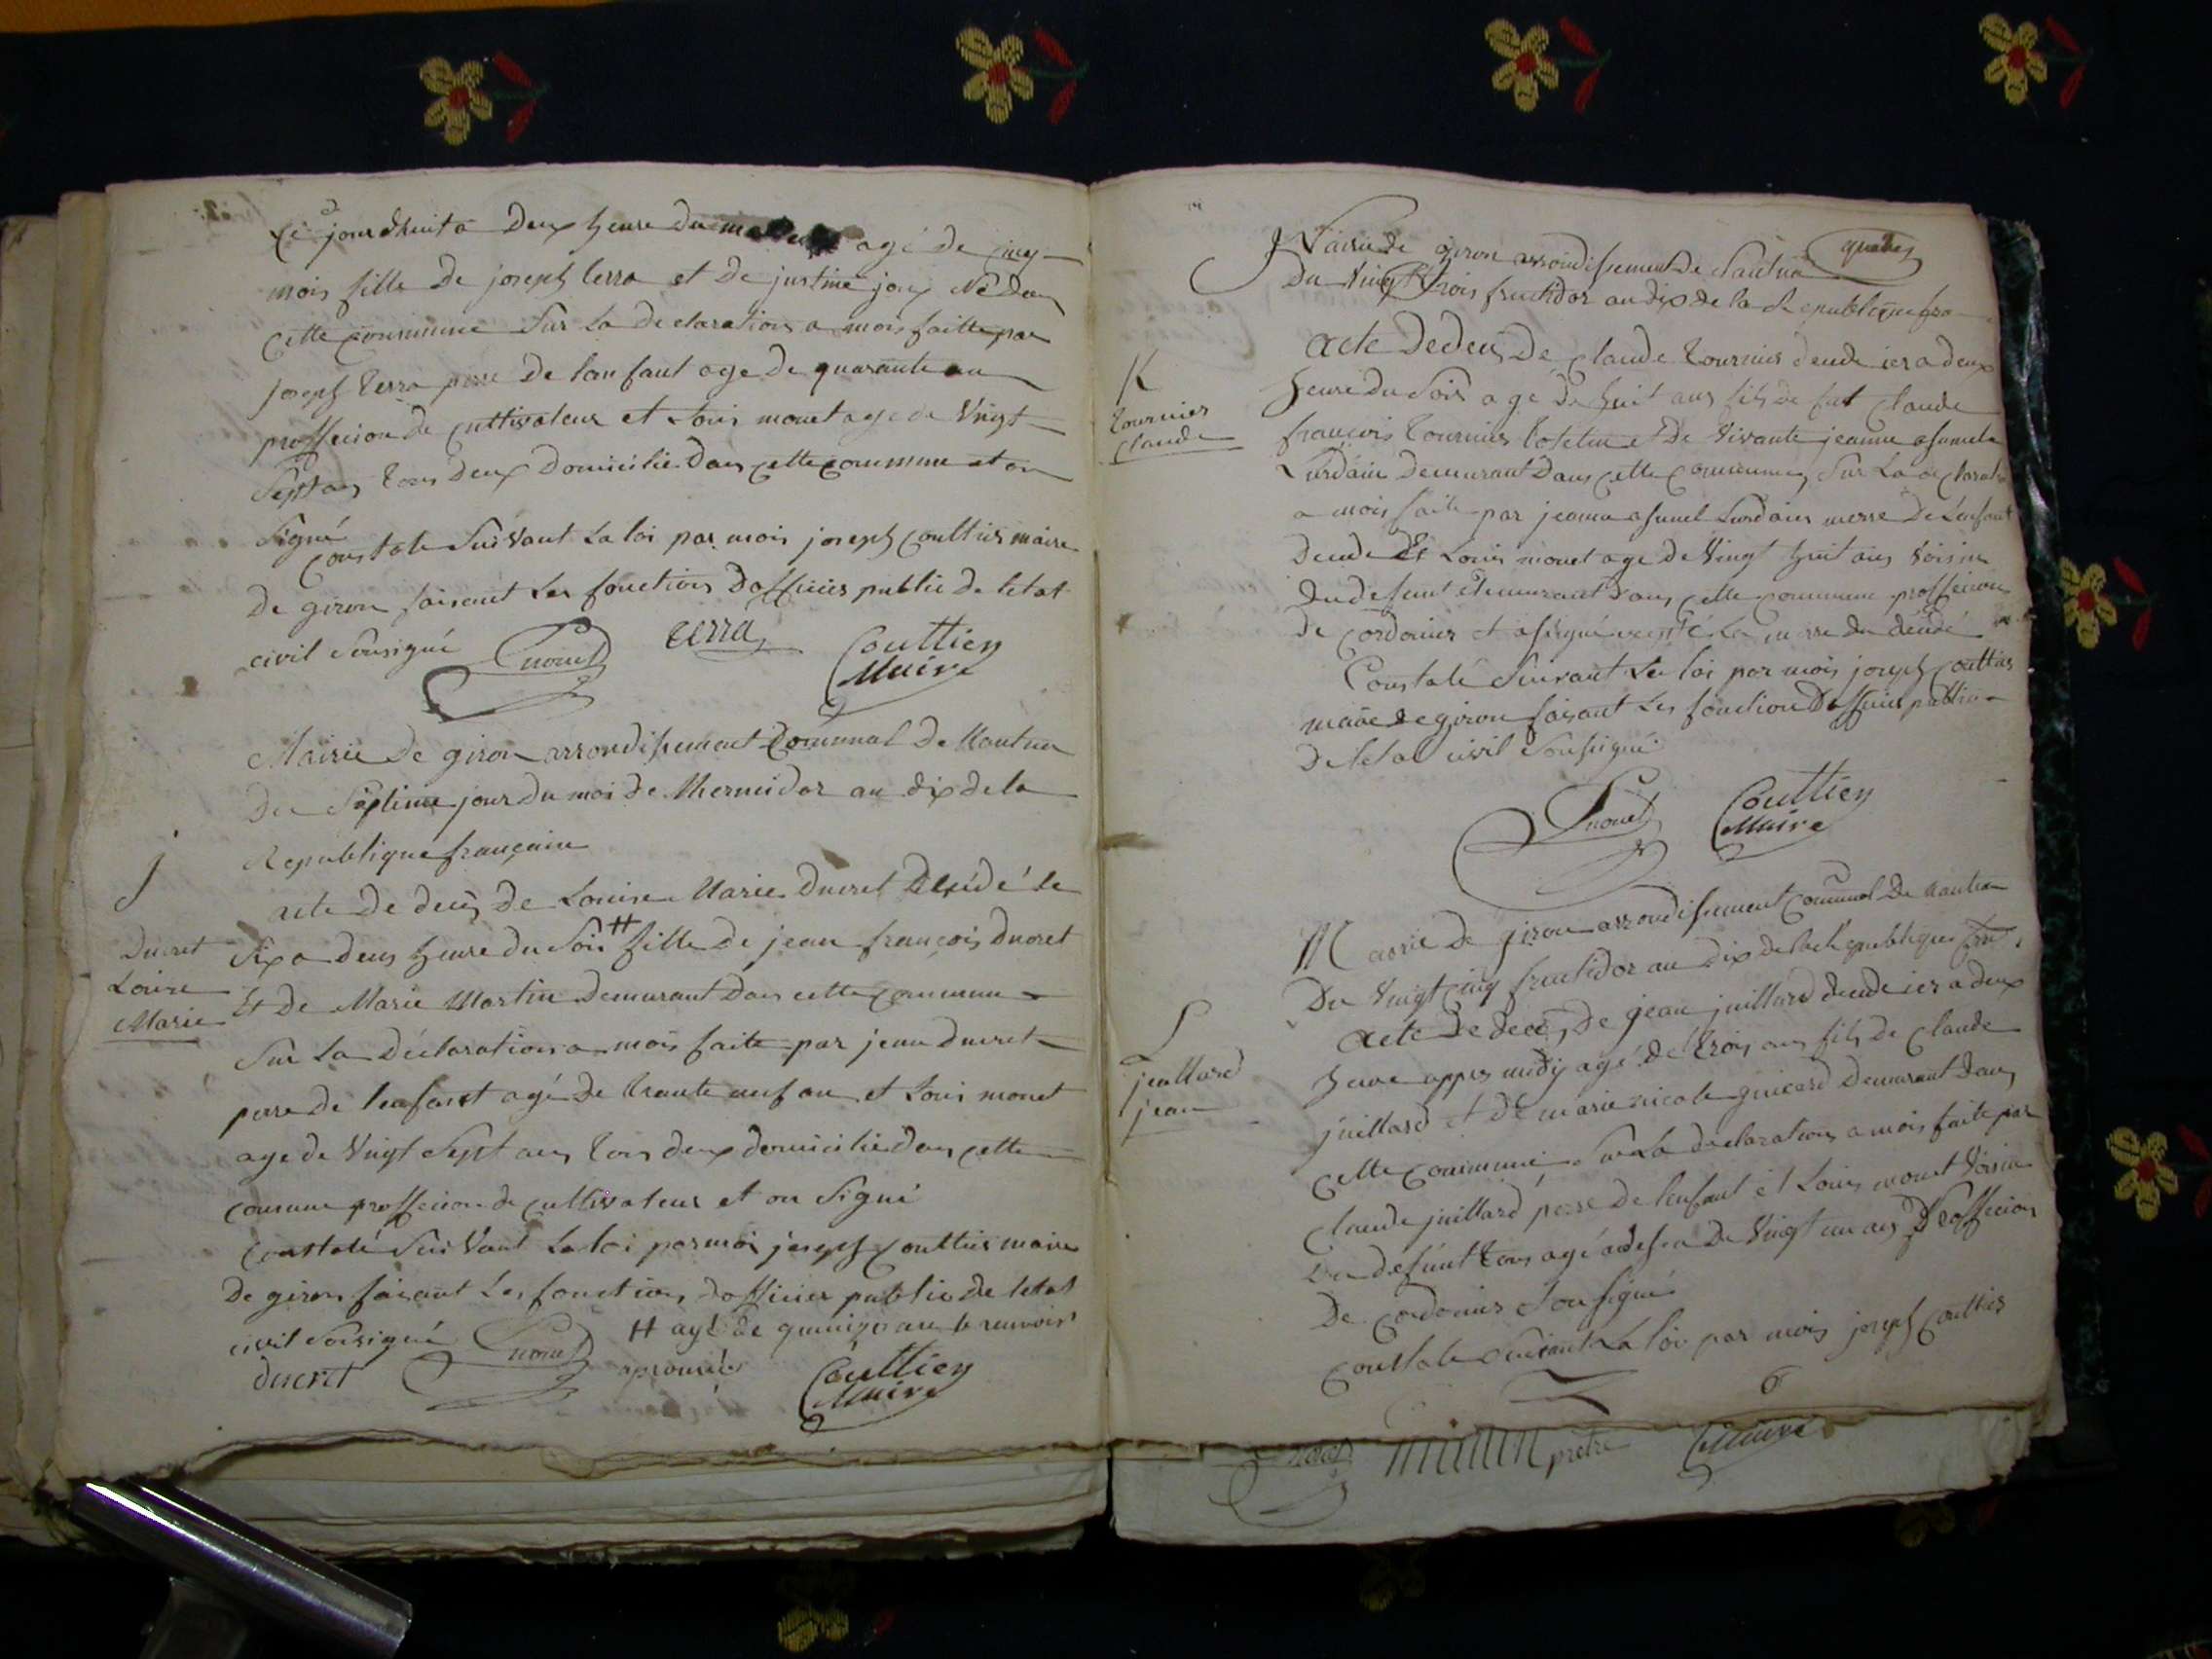 jourdhuit a Deux heure du agé de cinq
mois fille de joseph terra et de justine joux Né dans
cette commune Sur la Declaration a mois faitte par
joseph terra perre de lanfant age de quarante an
proffecion de cultivateur et Louis monet age de Vingt
Sept ans tous deux Domicilie dans cette commune et on
Signé
constate Suivant La loi par mois joseph coultier maire
De giron faisant les fonctions Dofficier public de letat
civil Sousigné Lmonet terra Couttier
Maire
Mairie de giron arrondissement Comunal de Nantua
Du Septieme jour du mois de thermidor an dix de la
Republique française
j
acte de deces de Louise Marie Ducret Decédé le
Ducret
Louise
Marie
Six a deux heure du Soir # fille de jean françois ducret
Et de Marie Martin Demurant dans cette commune
Sur La Déclaration a mois faite par jean ducret
perre de lenfant agé de trante neuf an et Louis monet
age de Vingt Sept ans tous deux domicilie dans cette
comune proffecion de cultivateur et on Signé
constaté Suivant La loi par moi joseph couttier maire
De giron faisant Les fonctions dofficier public de letat
civil Sousigné Lmonet # agé de quinze ans le renvois
ducret aprouvé Couttier
Maire
Mairie de giron arrondissement de Nantua
Du Vingt trois fructidor an dix de la Republique fra
acte De deces De claude tournier decede ier a deux
K
tournier
claude
heure du Soir age de huit ans fils de fut claude
françois tournier et De Vivante jeanne
Lurdain demurant Dans cette commune Sur La declaration
a mois faite par jeanne Lurdain merre de Lenfant
decede Et Louis monet age de Vingt huit ans Voisin
du defunt demurant Dans cette commune proffecion
De cordonier et a signé la merre du decedé
Constaté Suivant La loi par mois joseph couttier
maire de giron faisant les fonction Dofficier public
De letat civil Sousigné
Lmonet Couttier
Maire
Mairie de giron arrondissement Comunal De Nantua
Du Vingt cinq fructidor an dix de la Republique
L
juillard
jean
acte de deces de jean juillard decede ier a deux
heure appres midy agé de trois ans fils de claude
juillard et de marie nicole demurant dans
cette commune Sur La declaration a mois faite par
claude juillard perre de lenfant et Louis monet Voisin
Du defunt De Vingt ans Proffecion
De cordonier et on signé
constate Suivant La loi par mois joseph couttier
prêtre Maire